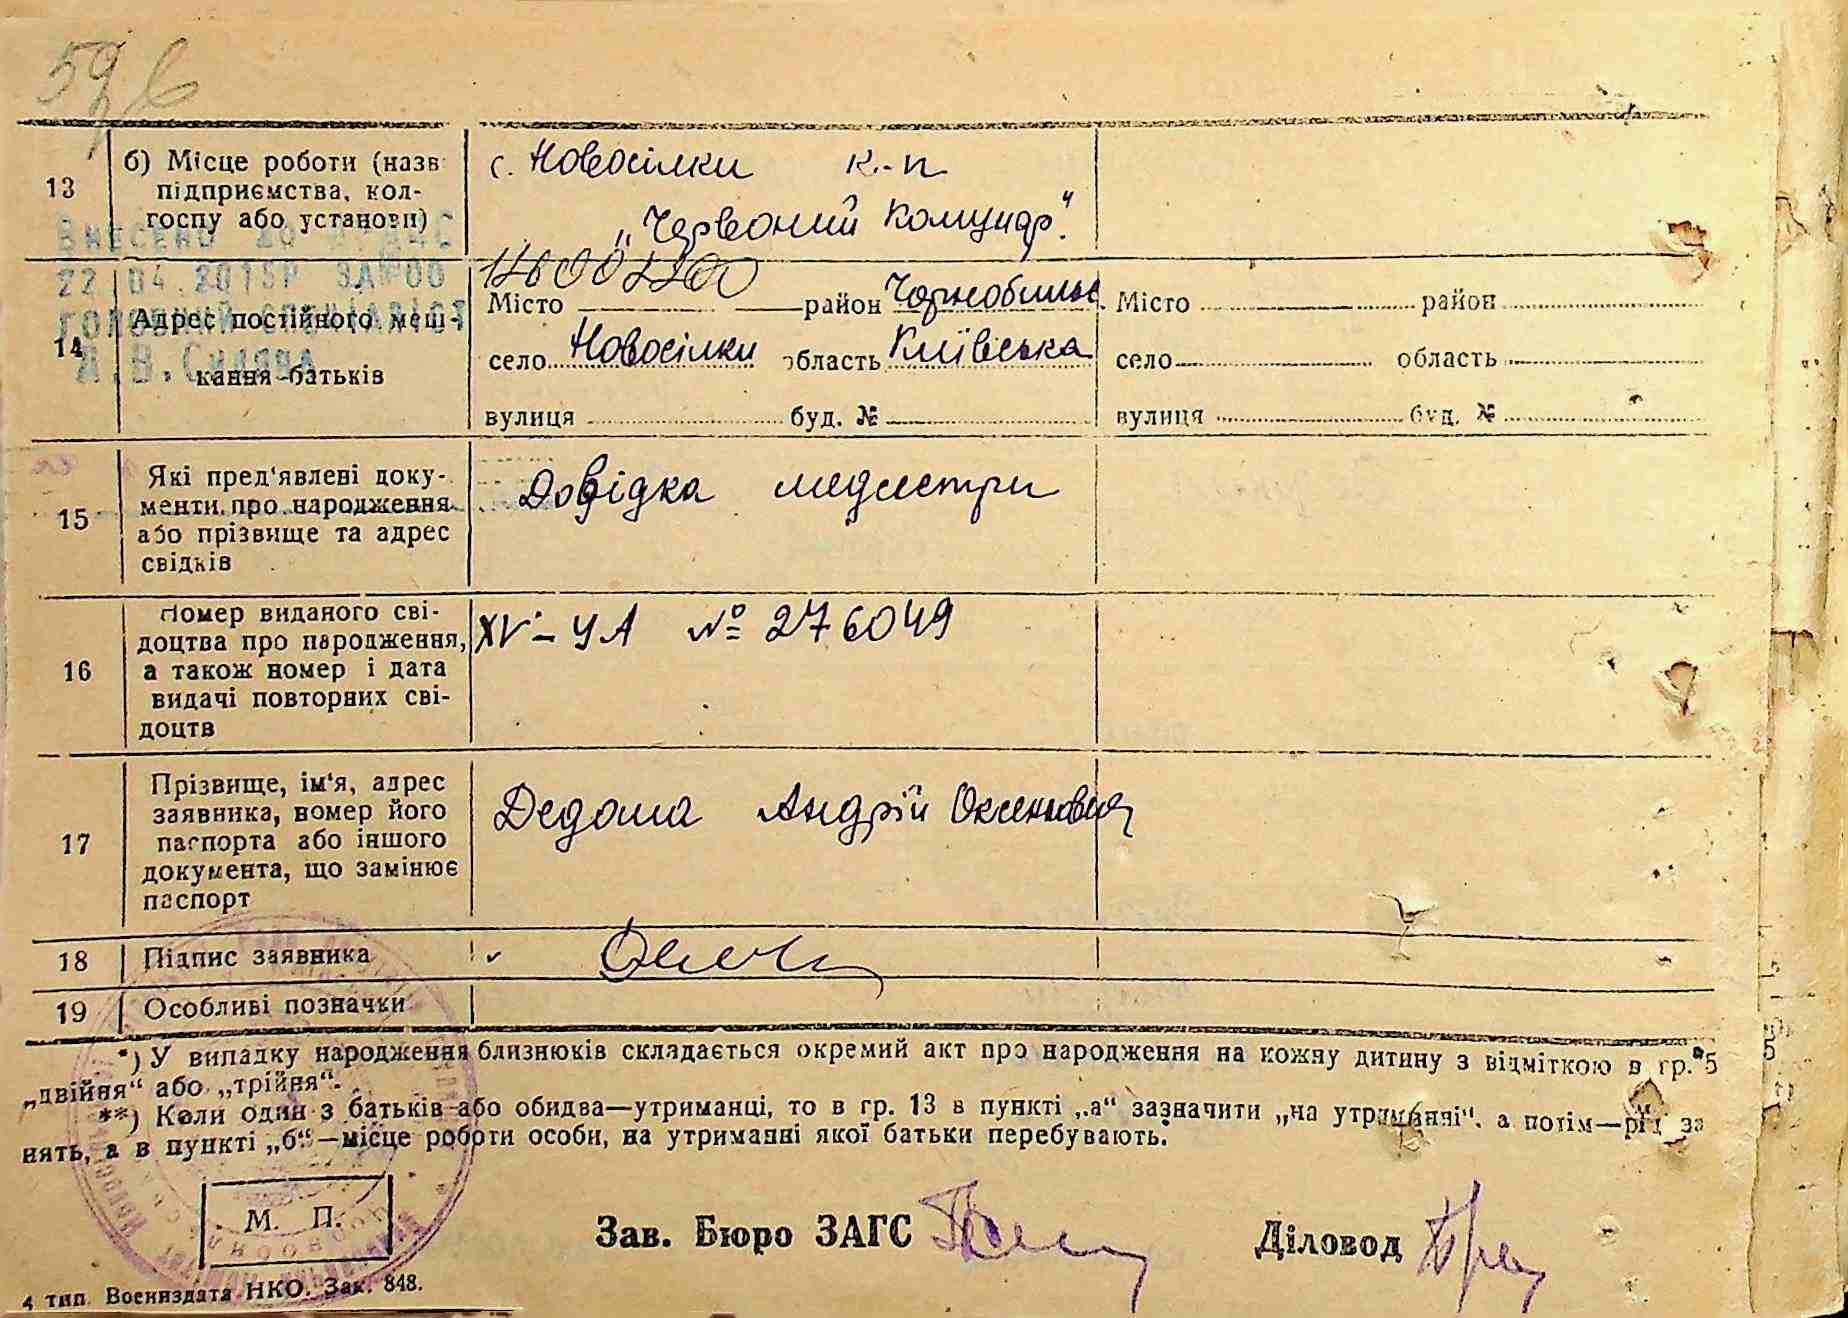 59 6
13 б) Місце роботи (назв підприємства, колгоспу або установи) с. Новосілки к-п
„Червоний Комунар".
Внесено до
22.04.2015р
12600220
14 Адрес постійного мешкання батьків
Місто район Чорнобильс Місто район
село Новосілки область Київська село область
вулиця буд. № вулиця буд. №
15 Які пред'явлені доку-
менти про народження
або прізвище та адрес
свідків
Довідка медсестри
16 Номер виданого сві-
доцтва про народження,
а також номер і дата
видачі повторних сві-
доцтв
XV-УА № 276049
17 Прізвище, ім'я, адрес
заявника, номер його
паспорта або іншого
документа, що замінює
паспорт
Андрій
18 Підпис заявника
19 Особливі позначки
*) У випадку народження близнюків складається окремий акт про народження на кожну дитину з відміткою в гр. 5
„двійня“ або „трійня“.
**) Коли один з батьків або обидва—утриманці, то в гр. 13 в пункті „а“ зазначити „на утриманні“, а потім—рід за
нять, а в пункті „б“—місце роботи особи, на утриманні якої батьки перебувають.
М. П.
Зав. Бюро ЗАГС Діловод
4 тип. Воениздата НКО. Зак. 848.